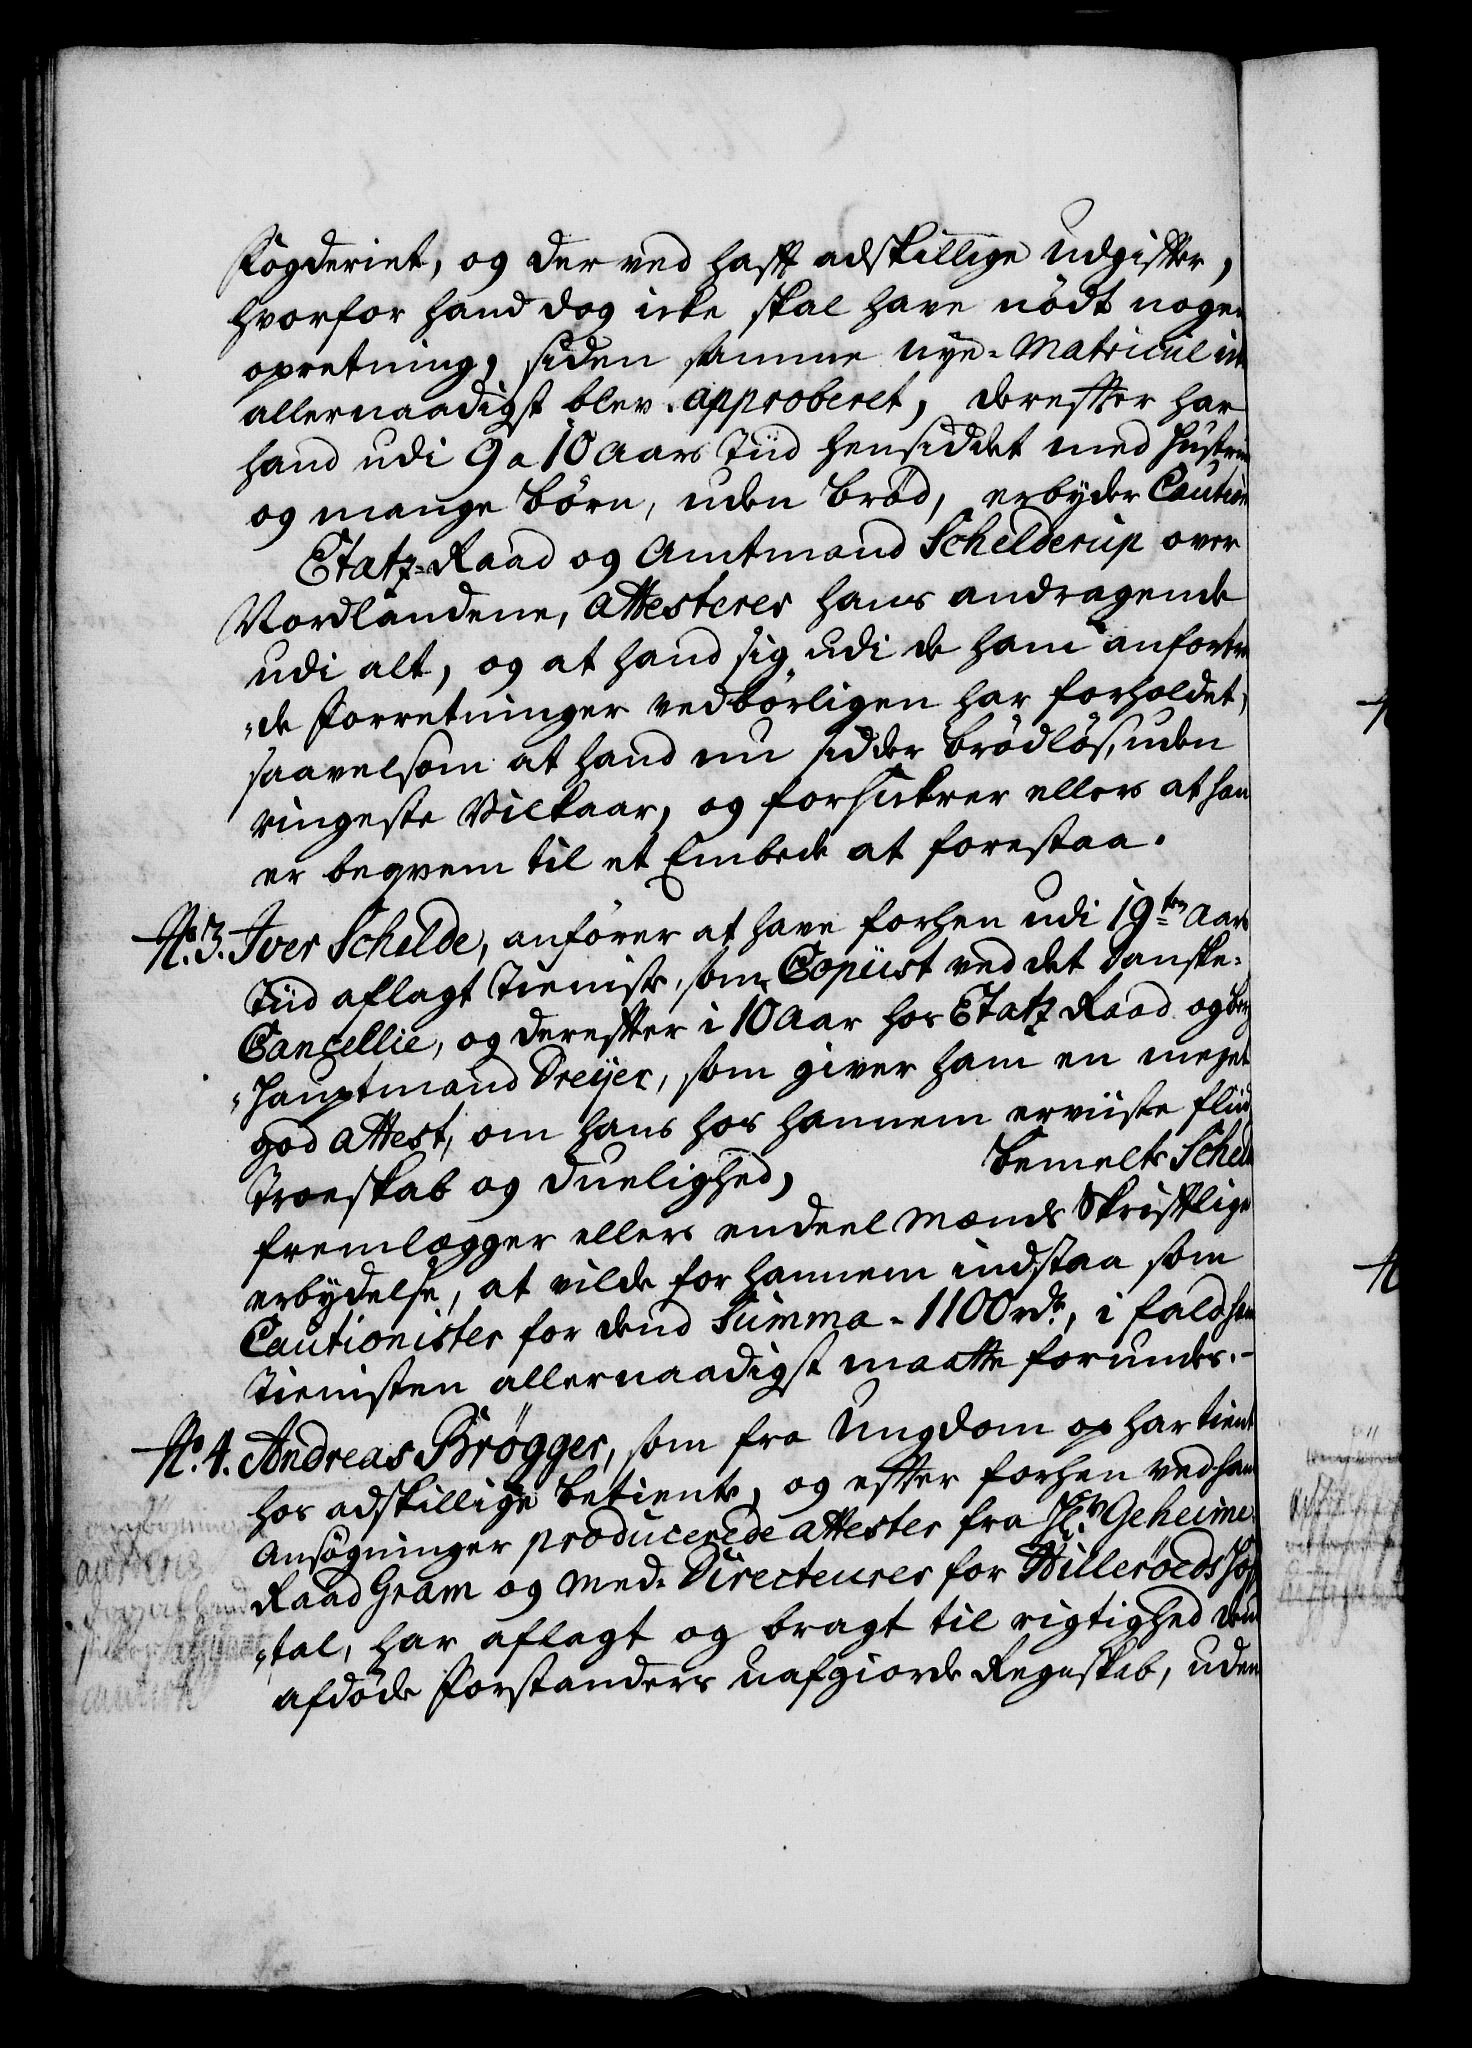 Fogderiet, og der ved hafft adskillige Udgiffter,
hvorfor hand dog icke skal have nödt nogen
opretning, siden samme nye Matricul
allernaadigst blev approberet, dereffter har
hand udi 9 a 10 Aars Tiid hensiddet med Hustrue
og mange Börn, uden bröd, erbyder Caution
Etatz-Raad og Amtmand Schelderup over
Nordlandene, Attesterer hans andragende
udi alt, og at hand sig udi de ham anfortro
-de Forretninger vedbörligen har forholdet,
saavelsom at hand nu sidder brödlös, uden
ringeste Vilkaar, og forsickrer ellers at han
er beqvem til et Embede at forestaa.
No. 3. Iver Schelde, anförer at have forhen udi 19ten Aars
Tiid aflagt Tieniste, som Copiist ved det Danske
Cancellie, og dereffter i 10 Aar hos Etatz Raad og Berg
-Hauptmand Dreyer, som giver ham en meget
god Attest, om hans hos hannem erviiste fliid
Troeskab og Duelighed, Bemelte Scheld
fremlægger ellers endeel Mænds Skrifftlige
erbydelse, at vilde for hannem indstaa som
Cautionister for dend Summa - 1100 rdr, i fald ham
Tienisten allernaadigst maatte forundes.-
No. 4. Andreas Brögger, som fra Ungdom op har tient
hos adskillige Betiente, og effter forhen ved hans
Ansögninger producerede Attester fra Hr. Geheime
Raad Gram og Med-Directeurer for Hilleröeds Hos
-tal, har aflagt og bragt til rigtighed den
afdöde Forstanders uafgiorde Regnskab, uden